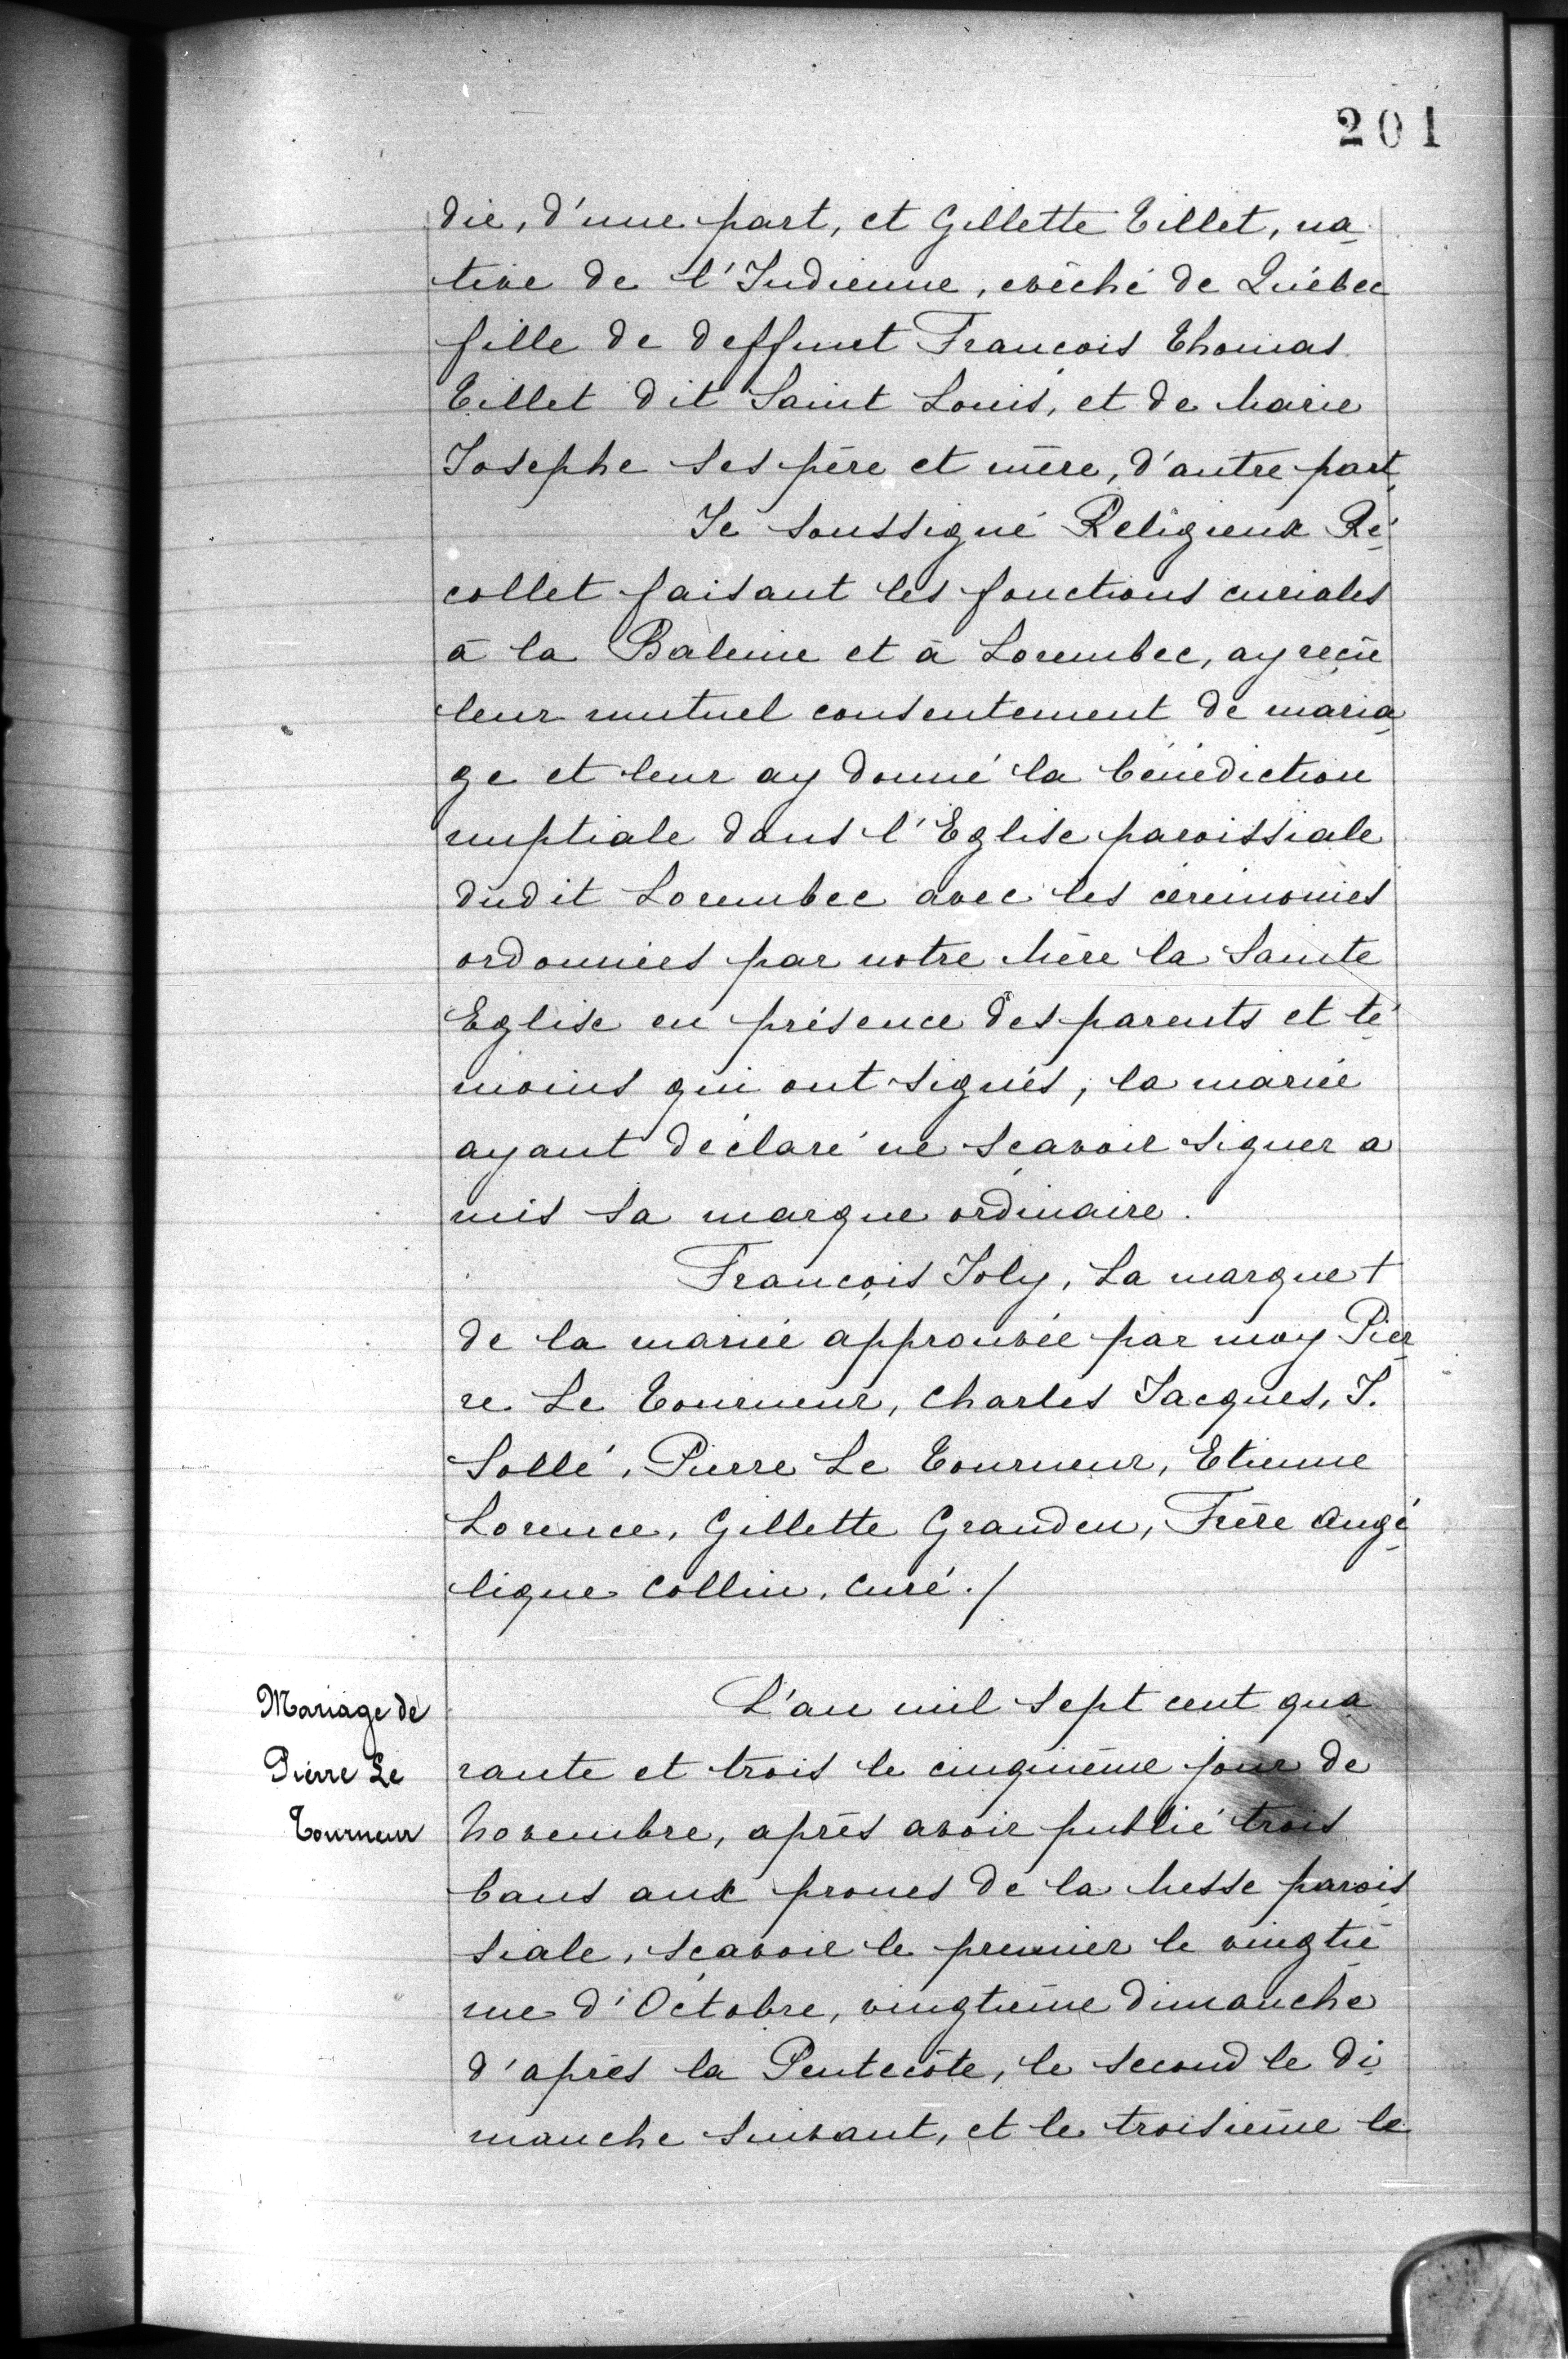 201
die, d'une part, et Gillette Tillet, na-
tive de l'Indienne, evêché de Québec
fille de deffunct François Thomas
Tillet dit Saint Louis, et de Marie
Josephe ses père et mère, d'autre part,
Je soussigné Religieux Ré-
collet faisant les fonctions curiales
à la Baleine et à Lorembec, ay reçû
leur mutuel consentement de maria-
ge et leur ay donné la bénédiction
nuptiale dans l'Eglise paroissiale
dudit Lorembec avec les cérémonies
ordonnées par notre Mère la Sainte
Eglise en présence des parents et té-
moins qui ont signés, la mariée
ayant déclaré ne sçavoir signer a
mis sa marque ordinaire.
François Joly, La marque +
de la mariée approuvée par moy Pier-
re Le Tourneur, Charles Jacques, J.
Sollé, Pierre Le Tourneur, Etienne
Lorence, Gillette Granden, Frère Angé-
lique Collin, Curé./
Mariage de
Pierre Le
Tourneur
L'an mil sept cent qua
rante et trois le cinquième jour de
Novembre, après avoir publié trois
bans aux prones de la Messe parois-
siale, sçavoir le premier le vingtiè-
me d'Octobre, vingtième dimanche
d'après la Pentecôte, le second le di-
manche suivant, et le troisième le